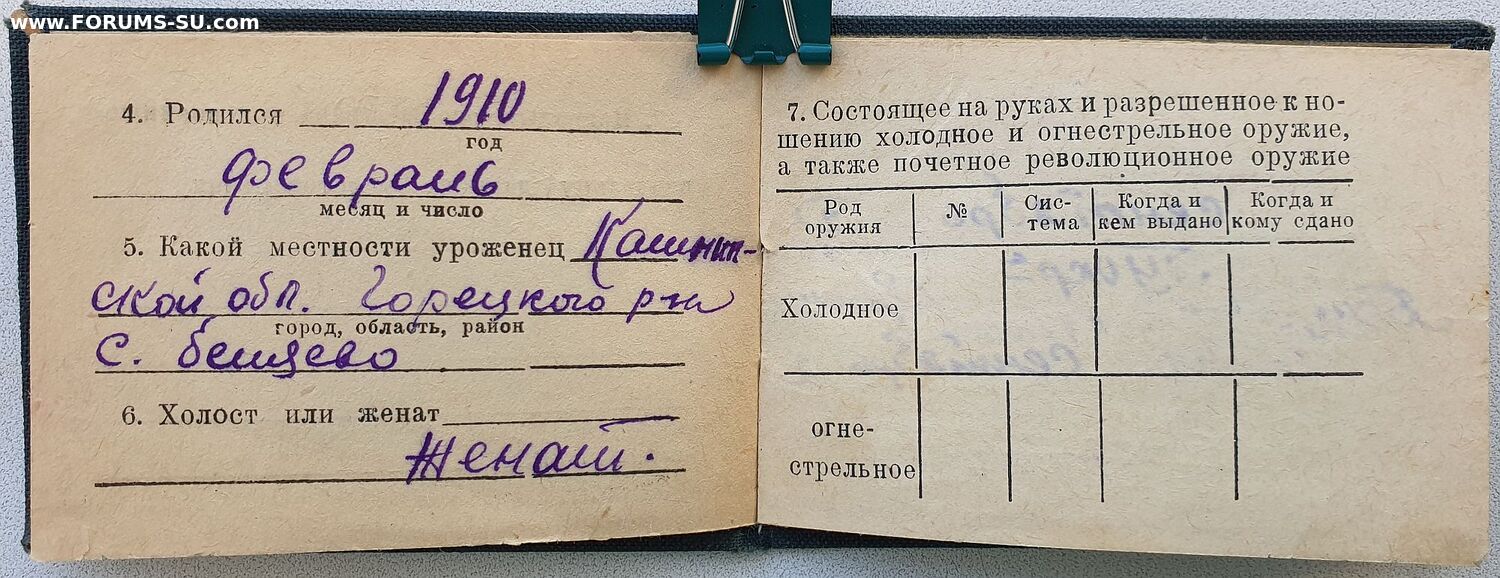 www.FORUMS-SU.com
4. Родился 1910
год
февраль
месяц и число
5. Какой местности уроженец Калинин-
ской обл. Горецкого р-на
город, область, район
с.
6. Холост или женат
Женат.
7. Состоящее на руках и разрешенное к но-
шению холодное и огнестрельное оружие,
а также почетное революционное оружие
Род оружия № Сис-тема Когда и кем выдано Когда и кому сдано
Холодное
огне-
стрельное